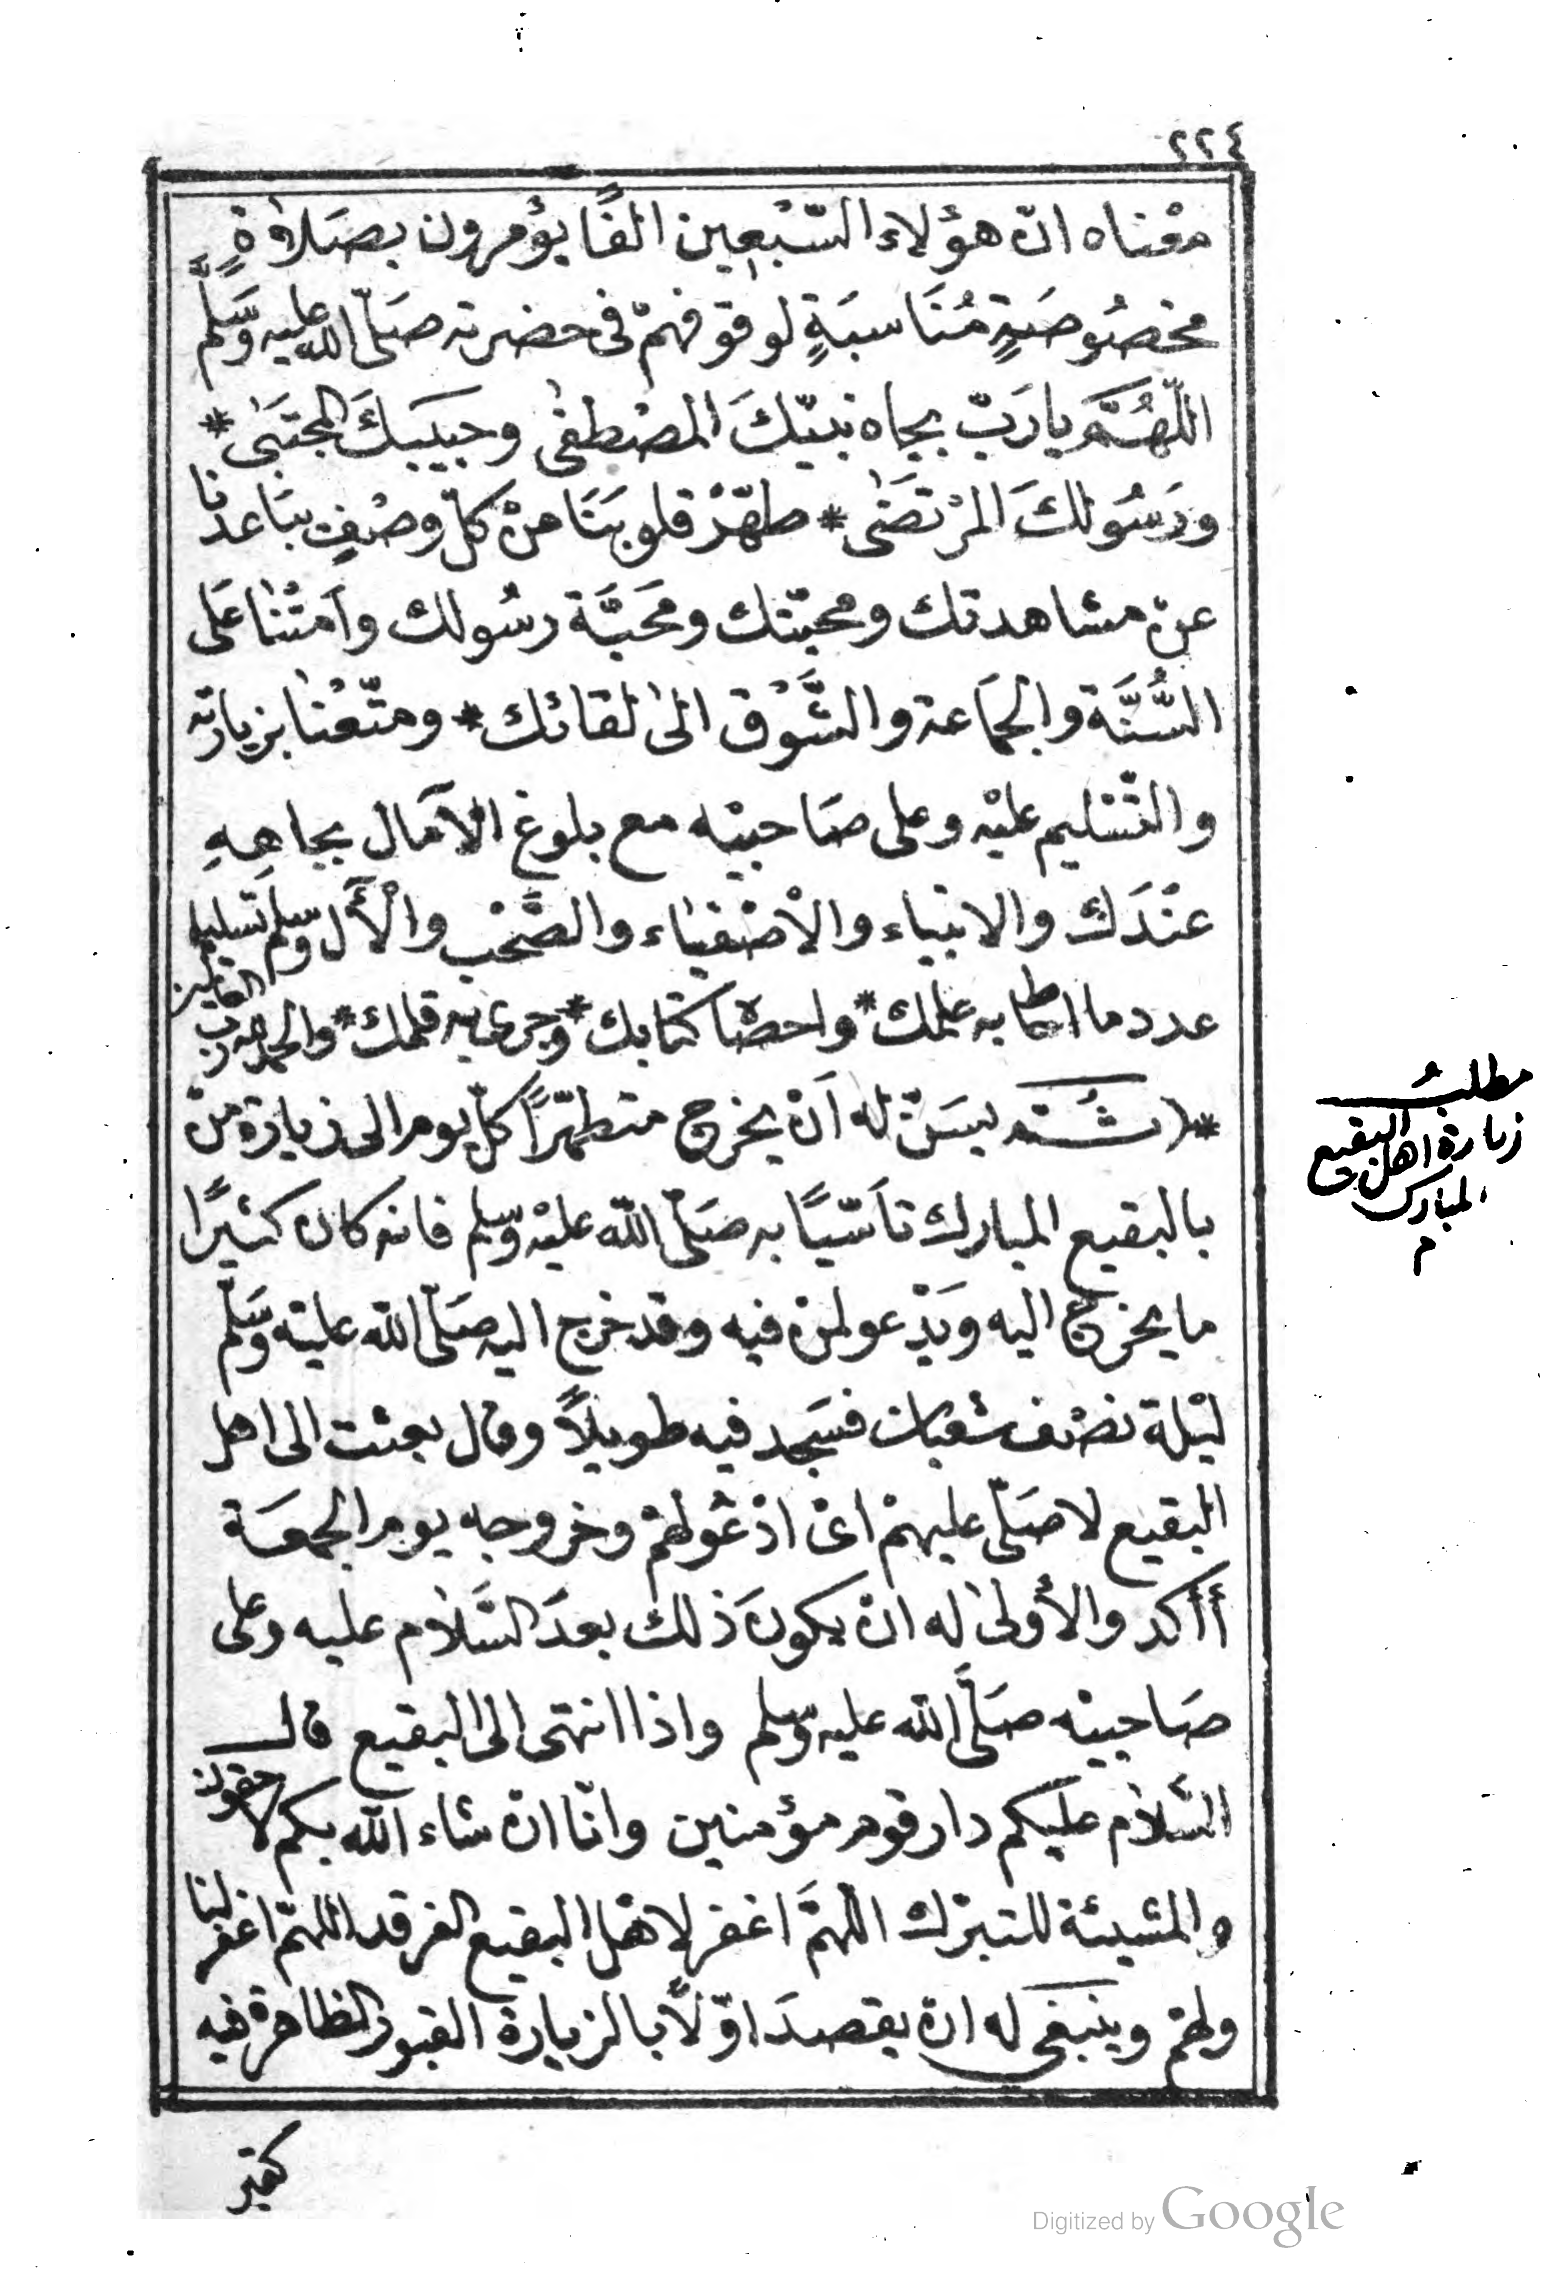 ٢٢٤
معْناه انّ هؤلاء السّبْعين الفًا يؤمرون بصَلاةٍ
مخصُوصَةٍ مُنَاسبَةٍ لوقوفهمْ فى حضرته صَلّى الله عليه وَسَلَّم
اللّهُمَّ يا رَبّ بجاه نبيّكَ المصْطفى وحبيبكَ المجتَبَى *
ورَسُولكَ المرْتضَى * طهّرْ قلوبَنَا منْ كلّ وصْفٍ يبَاعدنا
عنْ مشاهدتك ومحبّتك ومَحَبَّة رسُولك وامتْنا عَلى
السُّنَّة والجمَاعة والشَّوْق الى لقائك * ومتّعْنا بزيارته
والتّسْليم عليْه وعلى صَاحبيْه مع بلوغ الآمال بجاهِهِ
عنْدَك والانبياء والاصْفيَاء والصَّحْب والْأٓل وسلم تسليما
عدد ما احاط به علمك * واحصا كتابك * وجرى به قلمك * والحمد لله رب العالمين
* ( ثُمَّ يسَنّ له اَنْ يخرج متطهّرًا كلّ يوم الى زيارة منْ
بالبقيع المبارك تاَسّيًا به صَلّى الله عليْه وسلم فانه كان كثيرًا
ما يخرج اليه ويَدْعو لمنْ فيه وقد خرج اليه صَلّى الله عليْه وَسَلَّم
ليْلة نصْف شعبان فسَجد فيه طويلاً وقال بعثت الى اهل
البقيع لاصَلّى عليهمْ اىْ ادْعُولهمْ وخروجه يوم الجمعَة
أأكد والأولى له انْ يكونَ ذلك بعدَ السَّلام عليه وعلى
صَاحبيْه صَلَّى الله عليه وسلم واذا انتهى الى البقيع قال
السَّلام عليكم دار قوم مؤمنين وانّا انْ شاء الله بكم لاحقون
والمشيئة للتبرّك اللهمَّ اغفر لاهْل البقيع الغرقد اللهمّ اغفر لنا
ولهمْ وينبغى له انْ يقصدَ اوّلًا بالزيارة القبور الظاهرة فيه
كقبر
مطلبُ
زيارة اهل البقيع
المبارك
م
Digitized by Google